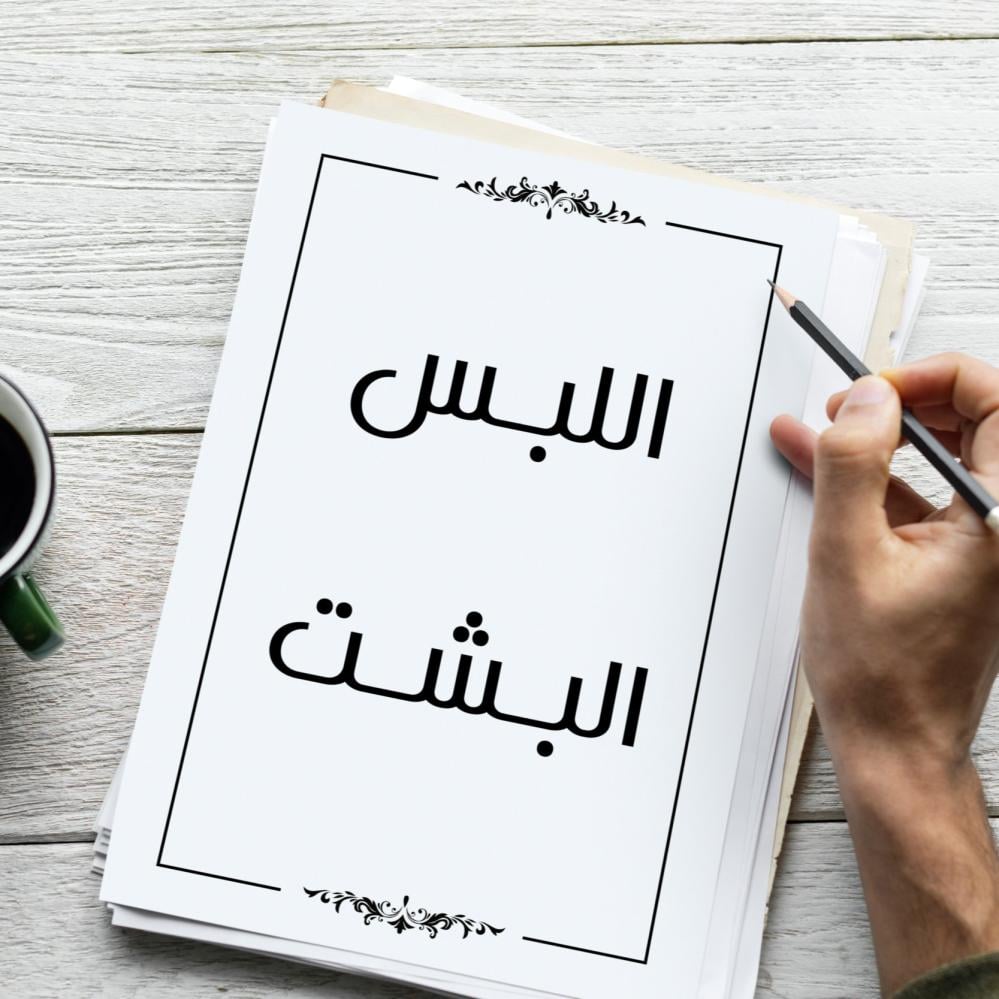 اللبس
البشت